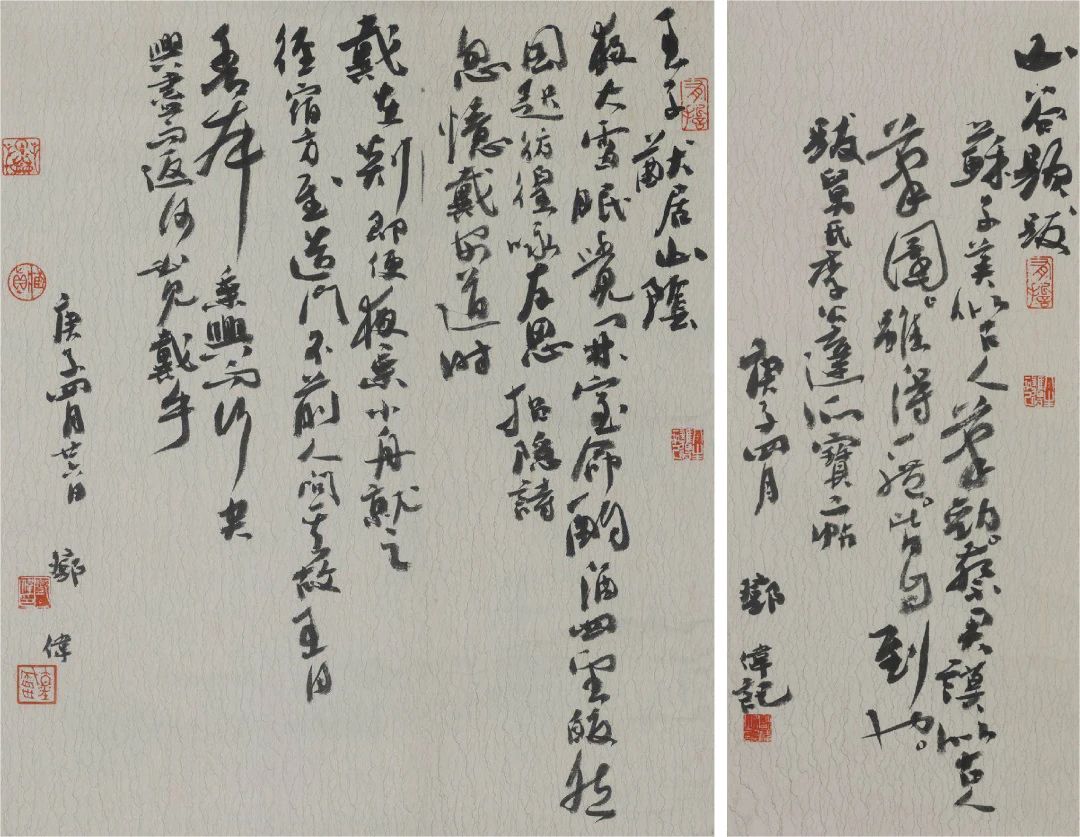 山谷題跋
蘇子美似古人筆勁。蔡君謨似古人
筆圓。雖得一體。皆自到也。
跋舅氏李公達所寶二帖
庚子四月 鄧偉記
王子猷居山陰
夜大雪眠覺開室命酌酒四望皎然
因起彷徨咏左思招隱詩
忽憶戴安道時
戴在剡即便夜乘小舟就之
經宿方至造門不前人問其故王曰
吾本乘興而行
興盡而返何必見戴乎
庚子四月廿六日 鄧偉